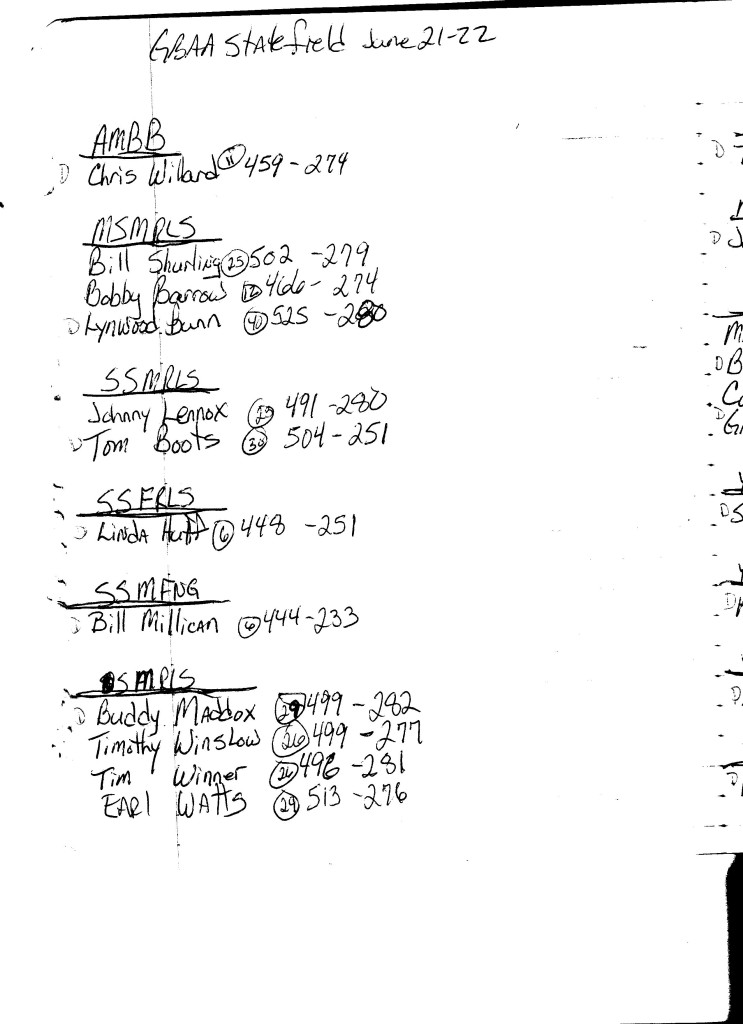 GBAA State field June 21-22
AMBB
D Chris Willard 11 459-274
MSMRLS
Bill Shurling 25 502 -279
Bobby Barrow 12 466- 274
D Lynwood Dunn 40 525 -280
SSMRLS
Johnny Lennox 491-280
D Tom Boots 30 504-251
SSFRLS
D LINDA Huff 6 448 -251
SSMFNG
D Bill Millican 6 444-233
SMRLS
D Buddy MADDOX 29 499 -282
Timothy WINSLOW 26 499 -277
Tim Winner 26 496 -281
EARl WATTS 29 513 -276